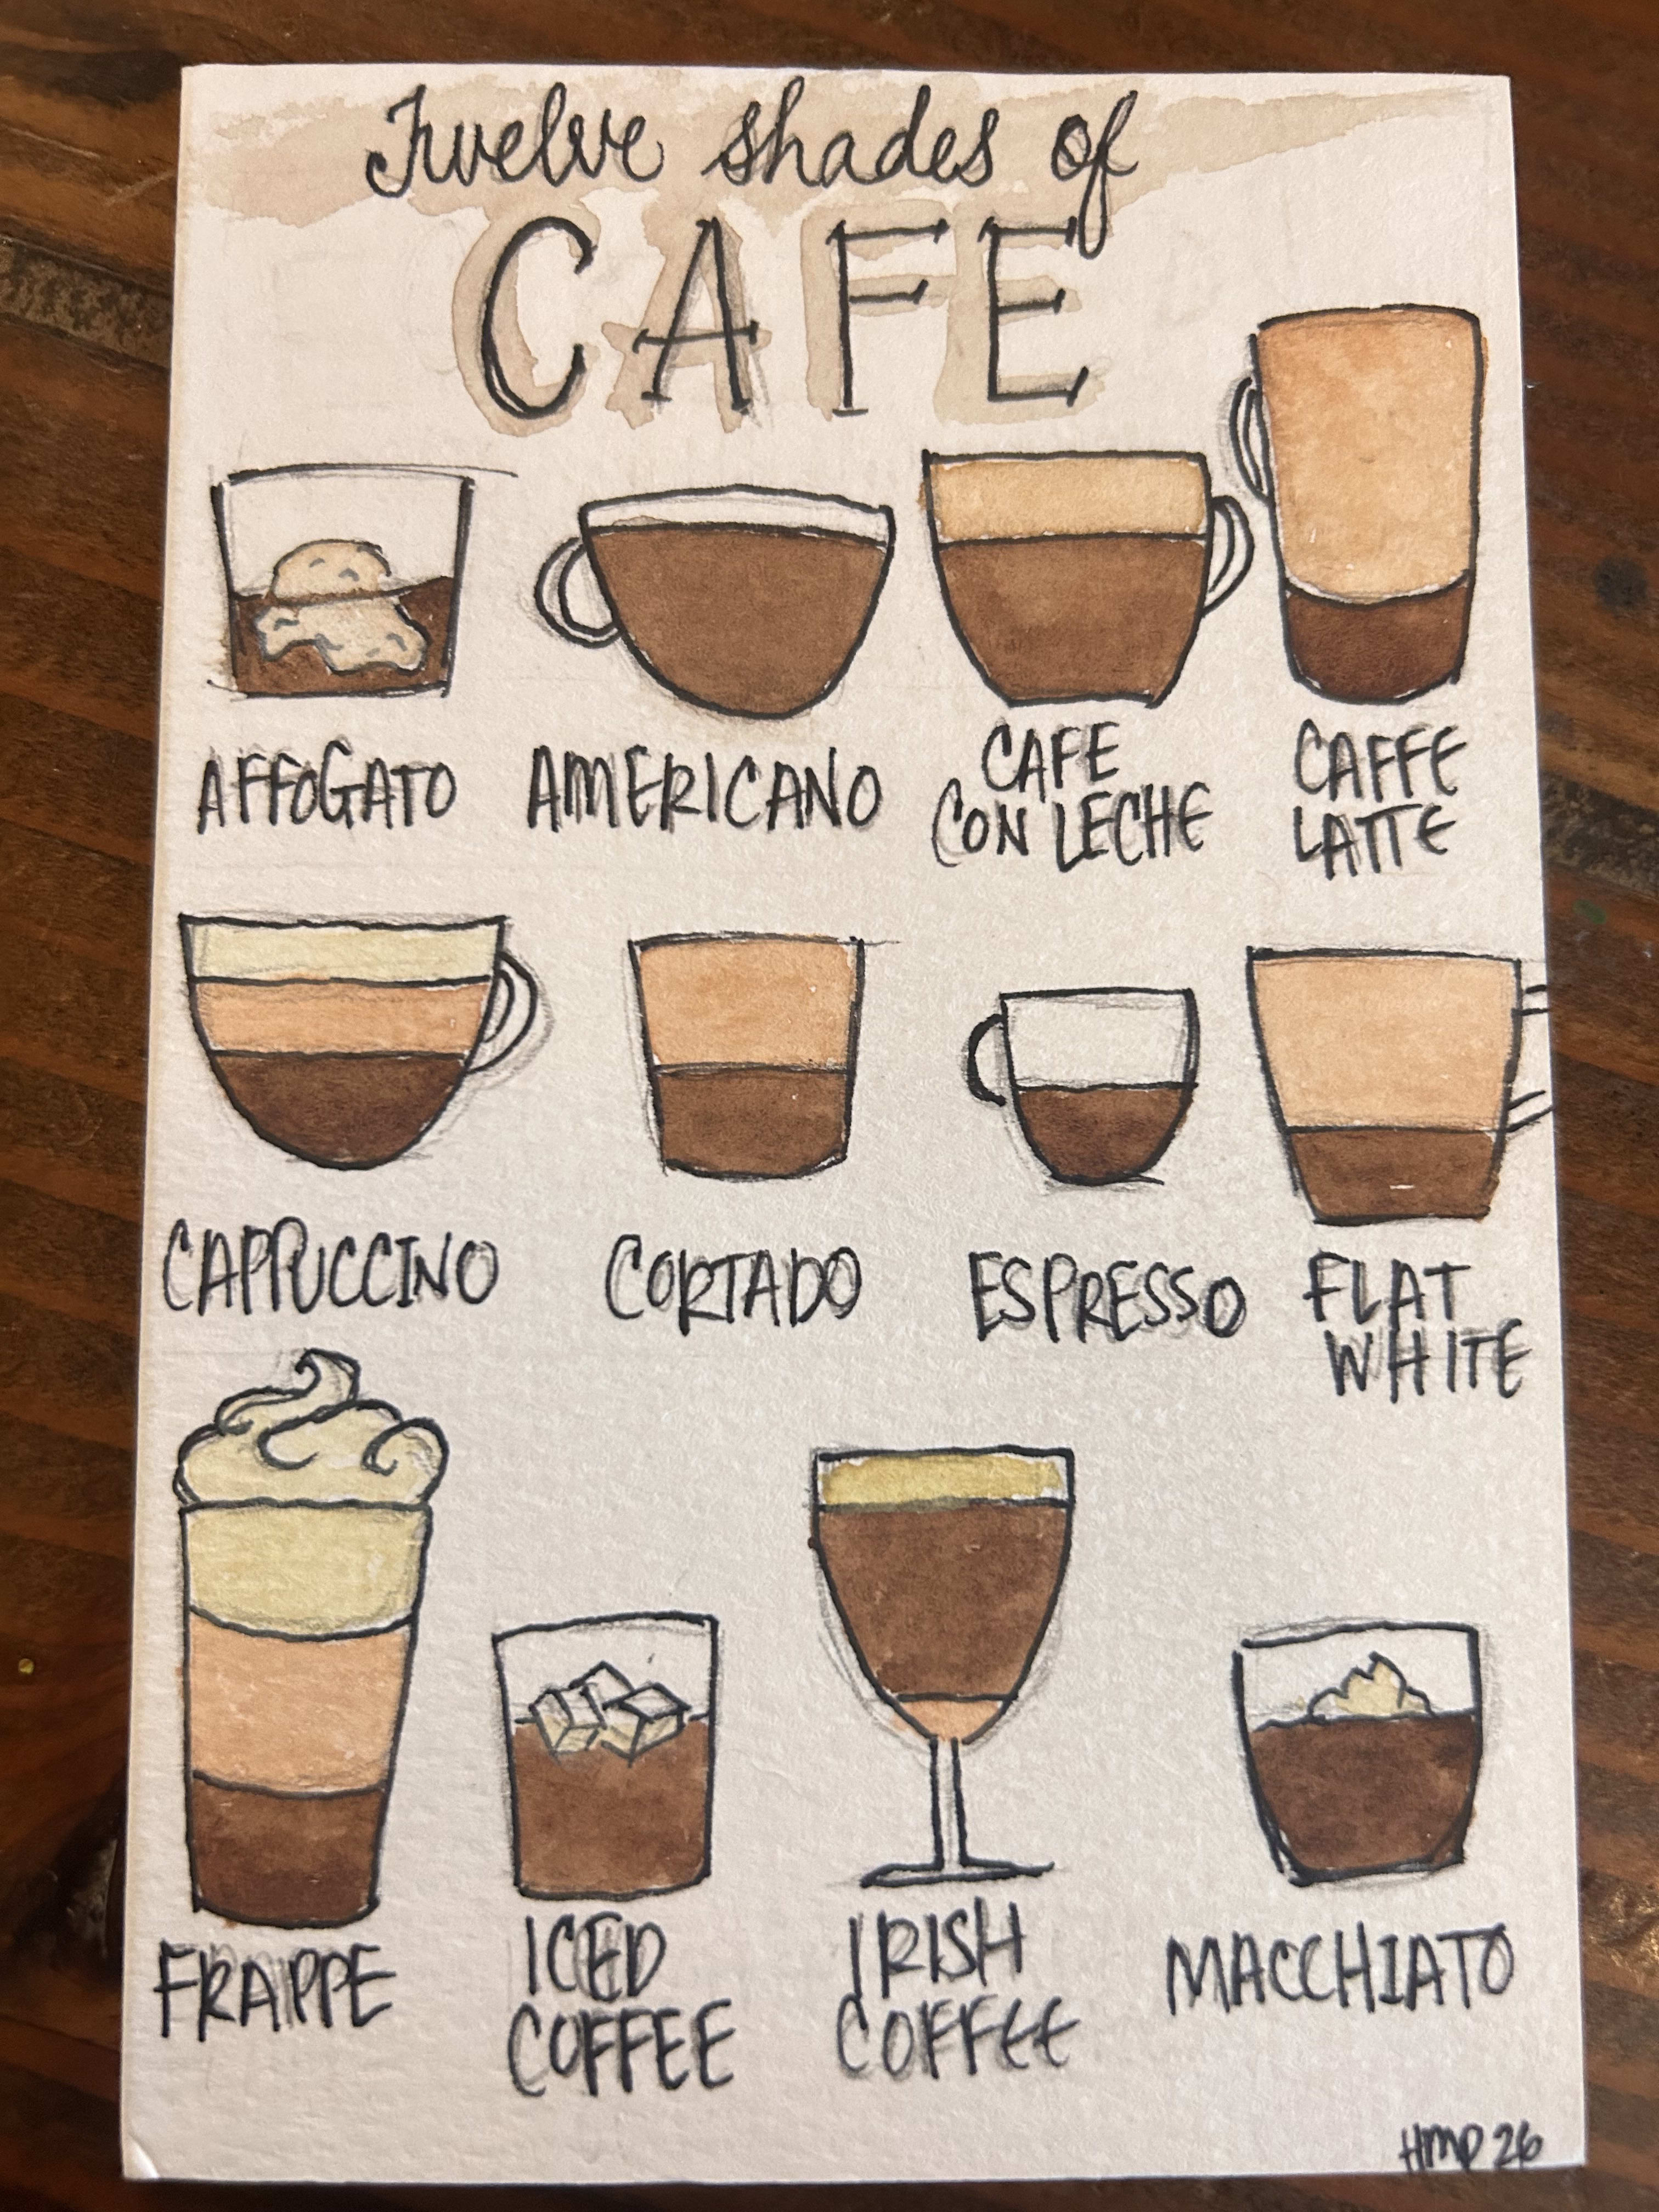 Twelve shades of
CAFE
AFFOGATO
AMERICANO
CAFE
CON LECHE
CAFFE
LATTE
CAPPUCCINO
CORTADO
ESPRESSO
FLAT
WHITE
FRAPPE
ICED
COFFEE
IRISH
COFFEE
MACCHIATO
HMP 26